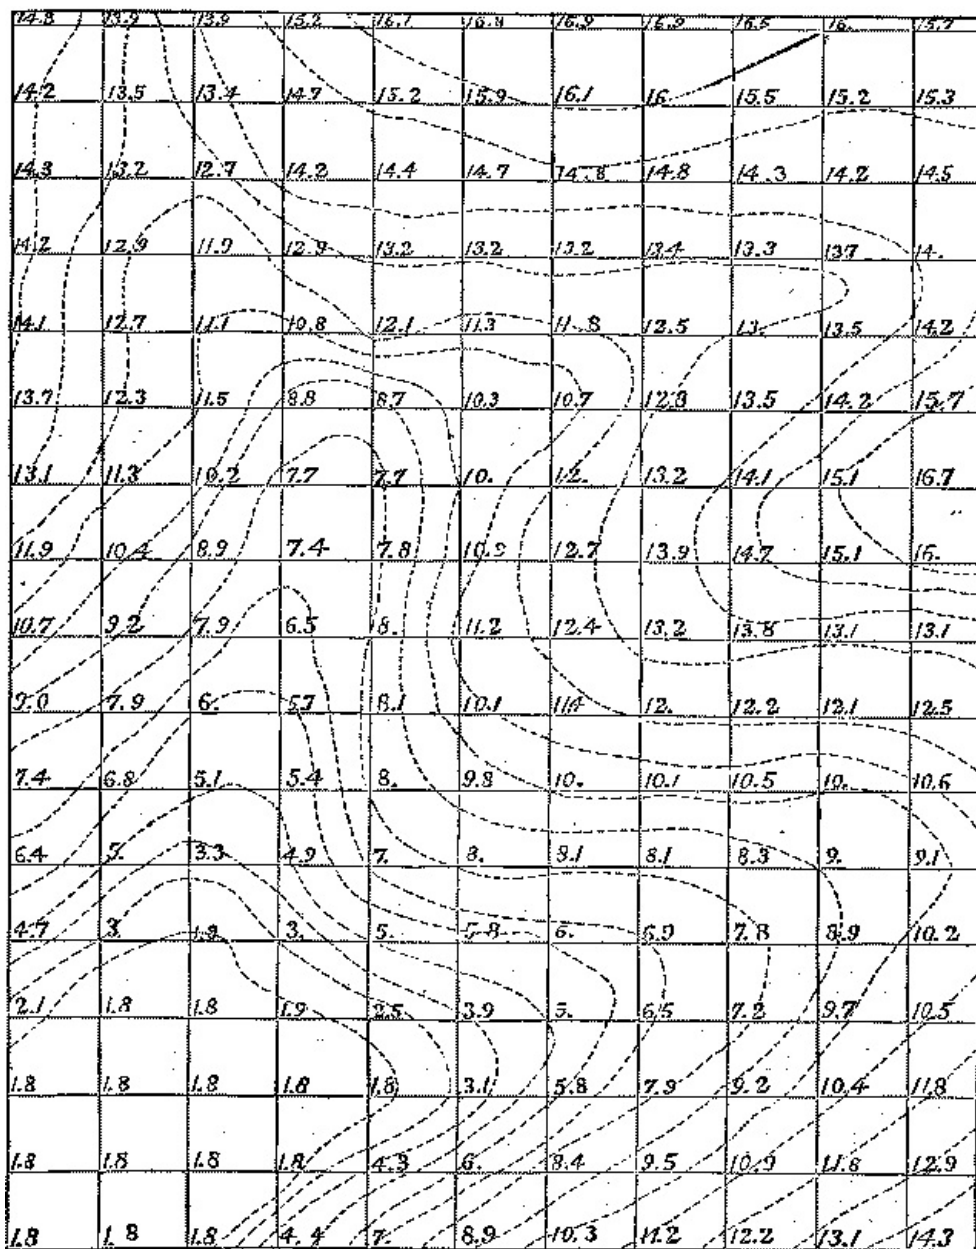 14.8 13.9 13.9 15.2 16.7 16.8 16.9 16.9 16.5 16. 15.7
14.2 13.5 13.4 14.7 15.2 15.9 16.1 16. 15.5 15.2 15.3
14.3 13.2 12.7 14.2 14.4 14.7 14.8 14.8 14.3 14.2 14.5
14.2 12.9 11.9 12.9 13.2 13.2 13.2 13.4 13.3 13.7 14.
14.1 12.7 11.1 10.8 12.1 11.3 11.8 12.5 13. 13.5 14.2
13.7 12.3 11.5 8.8 8.7 10.3 10.7 12.8 13.5 14.2 15.7
13.1 11.3 10.2 7.7 7.7 10. 12. 13.2 14.1 15.1 16.7
11.9 10.4 8.9 7.4 7.8 10.9 12.7 13.9 14.7 15.1 16.
10.7 9.2 7.9 6.5 8. 11.2 12.4 13.2 13.8 13.1 13.1
9.0 7.9 6. 5.7 8.1 10.1 11.4 12. 12.2 12.1 12.5
7.4 6.8 5.1 5.4 8. 9.8 10. 10.1 10.5 10. 10.6
6.4 5. 3.3 4.9 7. 8. 8.1 8.1 8.3 9. 9.1
4.7 3. 1.9 3. 5. 5.8 6. 6.9 7.8 8.9 10.2
2.1 1.8 1.8 1.9 2.5 3.9 5. 6.5 7.2 9.7 10.5
1.8 1.8 1.8 1.8 1.8 3.1 5.8 7.9 9.2 10.4 11.8
1.8 1.8 1.8 1.8 4.3 6. 8.4 9.5 10.9 11.8 12.9
1.8 1.8 1.8 4.4 7. 8.9 10.3 11.2 12.2 13.1 14.3